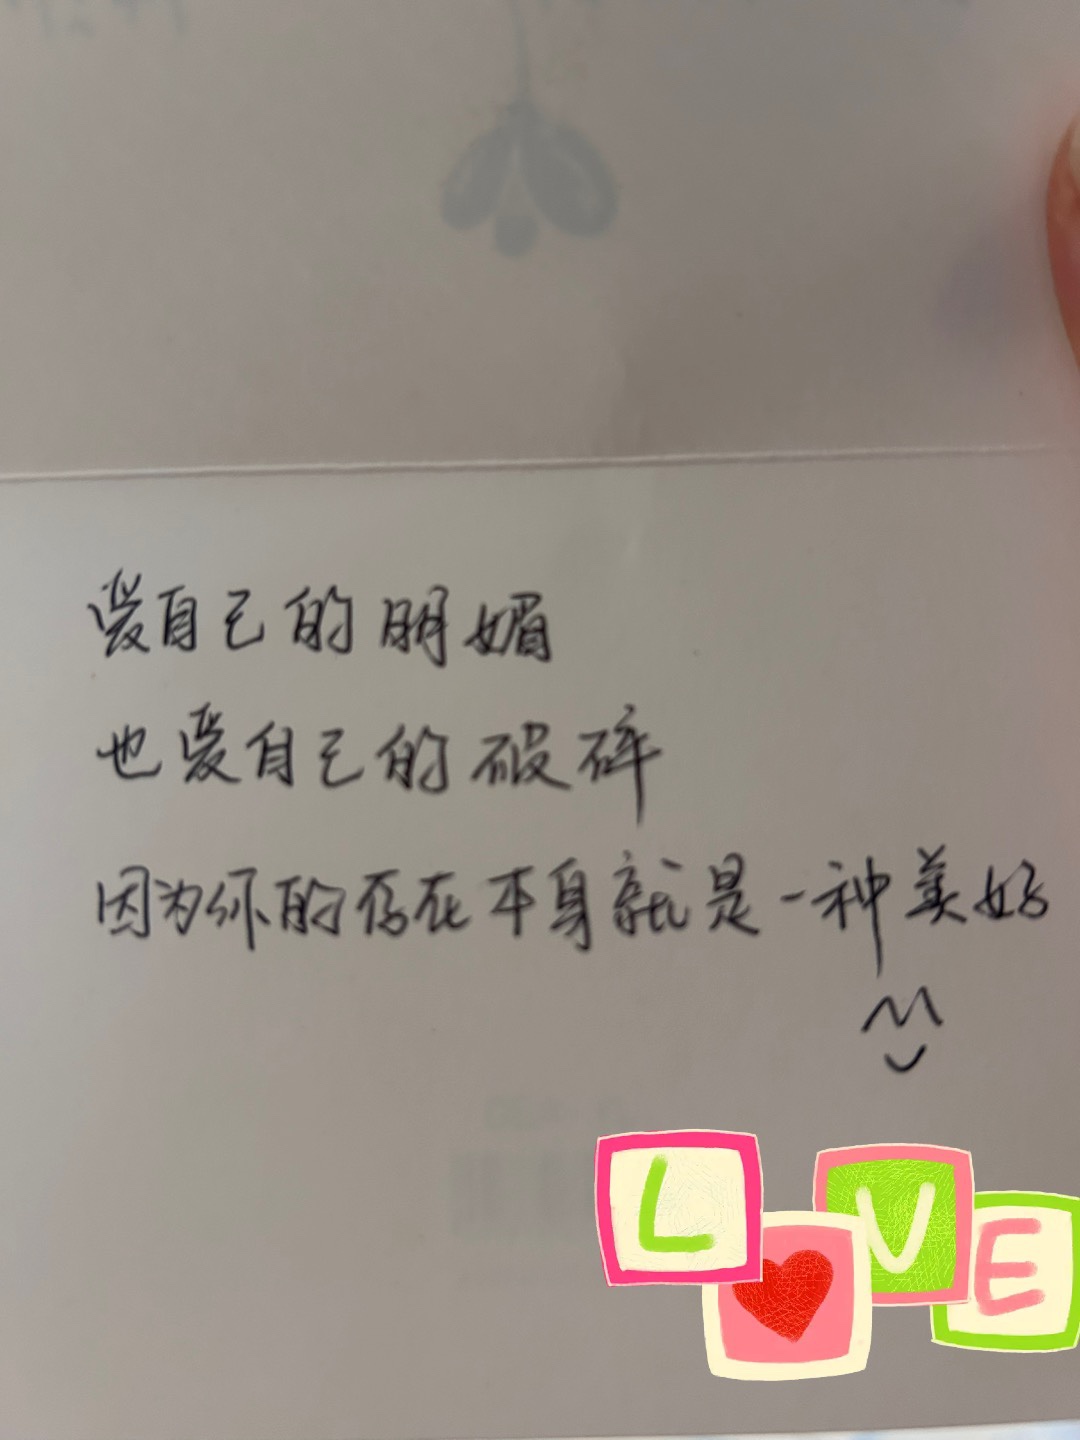 爱自己的明媚
也爱自己的破碎
因为你的存在本身就是一种美好
L VE